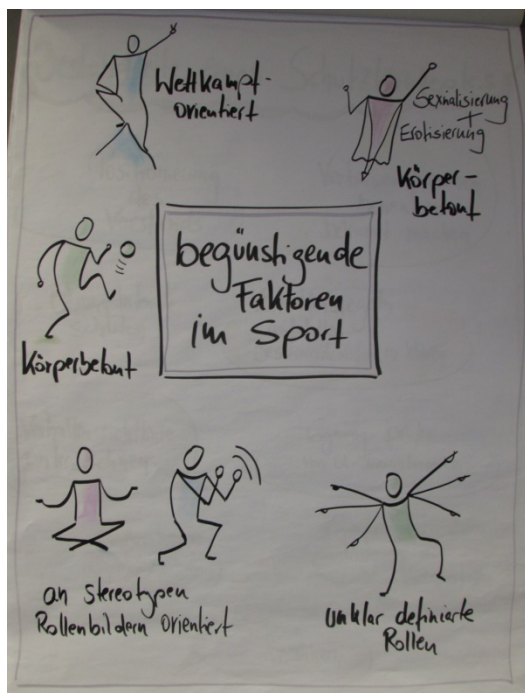 Wettkampf-
orientiert
Sexualisierung
+
Erotisierung
Körper-
betont
begünstigende
Faktoren
im Sport
Körperbetont
an stereotypen
Rollenbildern orientiert
unklar definierte
Rollen